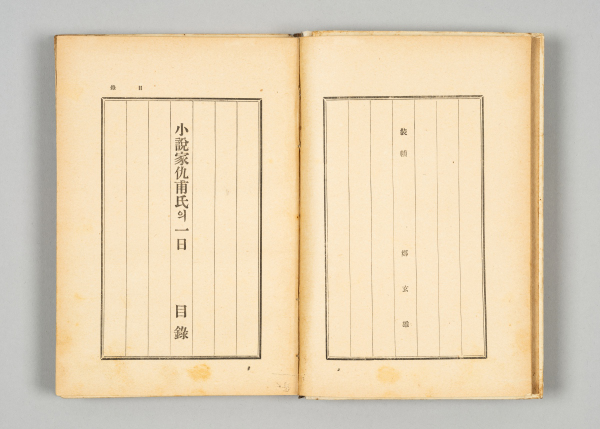 裝幀 鄭玄雄
目錄
小說家仇甫氏의一日 目錄